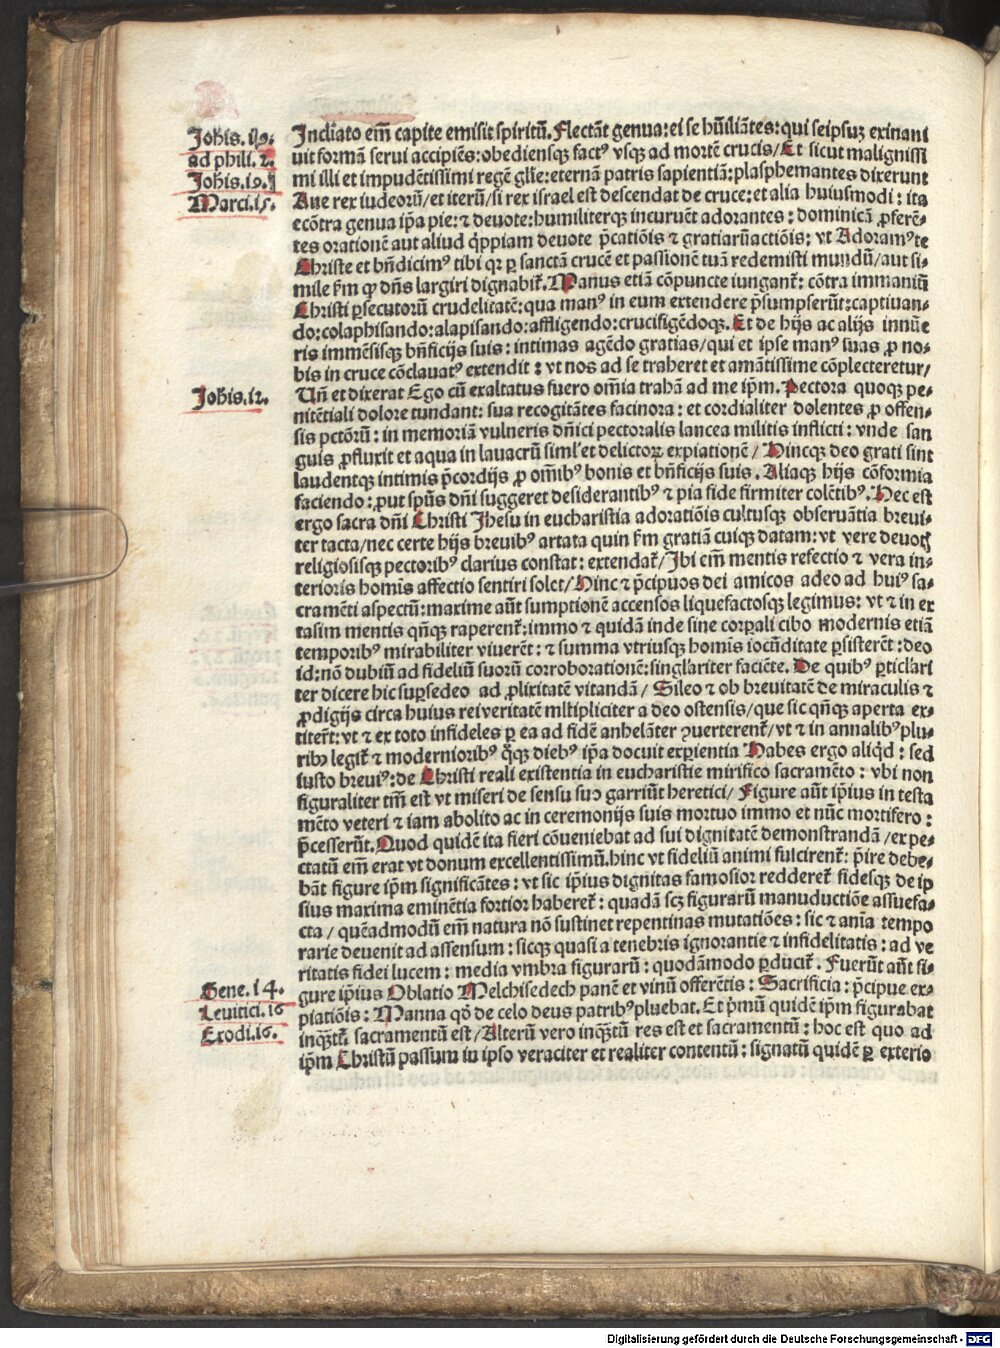 Johis. 19.
ad phili. 2.
Johis. 19. 
Marci. 15.
Inclīato em̄ capite emisit spiritū. Flectāt genua: ei se hūiliātes: qui seipsuꝫ exinani
uit formā serui accipiēs: obediensqꝫ fact⁹ vsqꝫ ad mortē crucis/ Et sicut malignissi
mi illi et impudētissimi regē glīe: eternā patris sapientiā: plasphemantes dixerunt
Aue rex iudeorū/ et iterū/ si rex israel est descendat de cruce: et alia huiusmodi: ita
ecōtra genua ip̄a pie: ⁊ deuote: humiliterqꝫ incuruēt adorantes: dominicā ꝓferē-
tes orationē aut aliud q̄ppiam deuote p̄catiōis ⁊ gratiarūactiōis: vt Adoram⁹te
Christe et bn̄dicim⁹ tibi qꝛ ꝑ sanctā crucē et passionē tuā redemisti mundū/ aut si-
mile ẜm ꝙ dn̄s largiri dignabit̄. Manus etiā cōpuncte iungant̄: cōtra immaniū
Christi ꝑsecutorū crudelitatē: qua man⁹ in eum extendere p̄sumpserūt: captiuan-
do: colaphisando: alapisando: affligendo: crucifigēdoqꝫ. Et de hijs ac alijs innūe
ris immēsisqꝫ bn̄ficijs suis: intimas agēdo gratias/ qui et ipse man⁹ suas ꝓ no-
bis in cruce cōclauat⁹ extendit: vt nos ad se traheret et amātissime cōplecteretur/
Johis. 12.
Un̄ et dixerat Ego cū exaltatus fuero om̄ia trahā ad me ip̄m. Pectora quoqꝫ pe-
nitētiali dolore tundant: sua recogitātes facinora: et cordialiter dolentes ꝓ offen-
sis pctōrū: in memoriā vulneris dn̄ici pectoralis lancea militis inflicti: vnde san
guis ꝓfluxit et aqua in lauacrū siml' et delictoꝝ expiationē/ Hincqꝫ deo grati sint
laudentqꝫ intimis p̄cordijs ꝓ om̄ib⁹ bonis et bn̄ficijs suis. Aliaqꝫ hijs cōformia
faciendo: ꝓut sp̄us dn̄i suggeret desiderantib⁹ ⁊ pia fide firmiter colētib⁹. Hec est
ergo sacra dn̄i Christi Jhesu in eucharistia adoratiōis cultusqꝫ obseruātia breui-
ter tacta/ nec certe hijs breuib⁹ artata quin ẜm gratiā cuiqꝫ datam: vt vere deuotꝭ
religiosisqꝫ pectorib⁹ clarius constat: extendat̄/ Ibi em̄ mentis refectio ⁊ vera in-
terioris homīs affectio sentiri solet/ Hinc ⁊ p̄cipuos dei amicos adeo ad hui⁹ sa-
cramēti aspectū: maxime aūt sumptionē accensos liquefactosqꝫ legimus: vt ⁊ in ex
tasim mentis qn̄qꝫ raperent̄: immo ⁊ quidā inde sine corꝑali cibo modernis etiā
temporib⁹ mirabiliter viuerēt: ⁊ summa vtriusqꝫ homīs iocūditate ꝑsisterēt: deo
id: nō dubiū ad fideliū suorū corroborationē: singlariter faciēte. De quib⁹ ꝑticlari
ter dicere hic suꝑsedeo ad ꝓlixitatē vitandā/ Sileo ⁊ ob breuitatē de miraculis ⁊
ꝓdigijs circa huius rei veritatē mltipliciter a deo ostensis/ que sic qn̄qꝫ aperta ex-
titerūt: vt ⁊ ex toto infideles ꝑ ea ad fidē anhelāter ꝯuerterent̄/ vt ⁊ in annalib⁹plu-
rib⁹ legit̄ ⁊ moderniorib⁹ q̄qꝫ dieb⁹ ip̄a docuit experientia Habes ergo aliqd̄: sed
iusto breui⁹: de Christi reali existentia in eucharistie mirifico sacramēto: vbi non
figuraliter tm̄ est vt miseri de sensu suo garriūt heretici/ Figure aūt ip̄ius in testa
mēto veteri ⁊ iam abolito ac in ceremonijs suis mortuo immo et nūc mortifero:
p̄cesserūt. Quod quidē ita fieri cōueniebat ad sui dignitatē demonstrandā/ expe-
ctatū em̄ erat vt donum excellentissimū. hinc vt fideliū animi fulcirent̄: p̄ire debe-
bāt figure ip̄m significātes: vt sic ip̄ius dignitas famosior redderet̄ fidesqꝫ de ip
sius maxima eminētia fortior haberet̄: quadā scꝫ figurarū manuductiōe assuefa-
cta/ quēadmodū em̄ natura nō sustinet repentinas mutatiōes: sic ⁊ anīa tempo
rarie deuenit ad assensum: sicqꝫ quasi a tenebris ignorantie ⁊ infidelitatis: ad ve
ritatis fidei lucem: media vmbra figurarū: quodāmodo ꝑducit̄. Fuerūt aūt fi-
Gene. 14.
Leuitici. 16
Exodi. 16.
gure ip̄ius Oblatio Melchisedech panē et vinū offerētis: Sacrificia: p̄cipue ex-
piatiōis: Manna qō de celo deus patrib⁹pluebat. Et p̄mū quidē ip̄m figurabat
inqꝫtū sacramentū est/ Alterū vero inqꝫtū res est et sacramentū: hoc est quo ad
ip̄m Christū passum in ipso veraciter et realiter contentū: signatū quidē ꝑ exterio
Digitalisierung gefördert durch die Deutsche Forschungsgemeinschaft - DFG